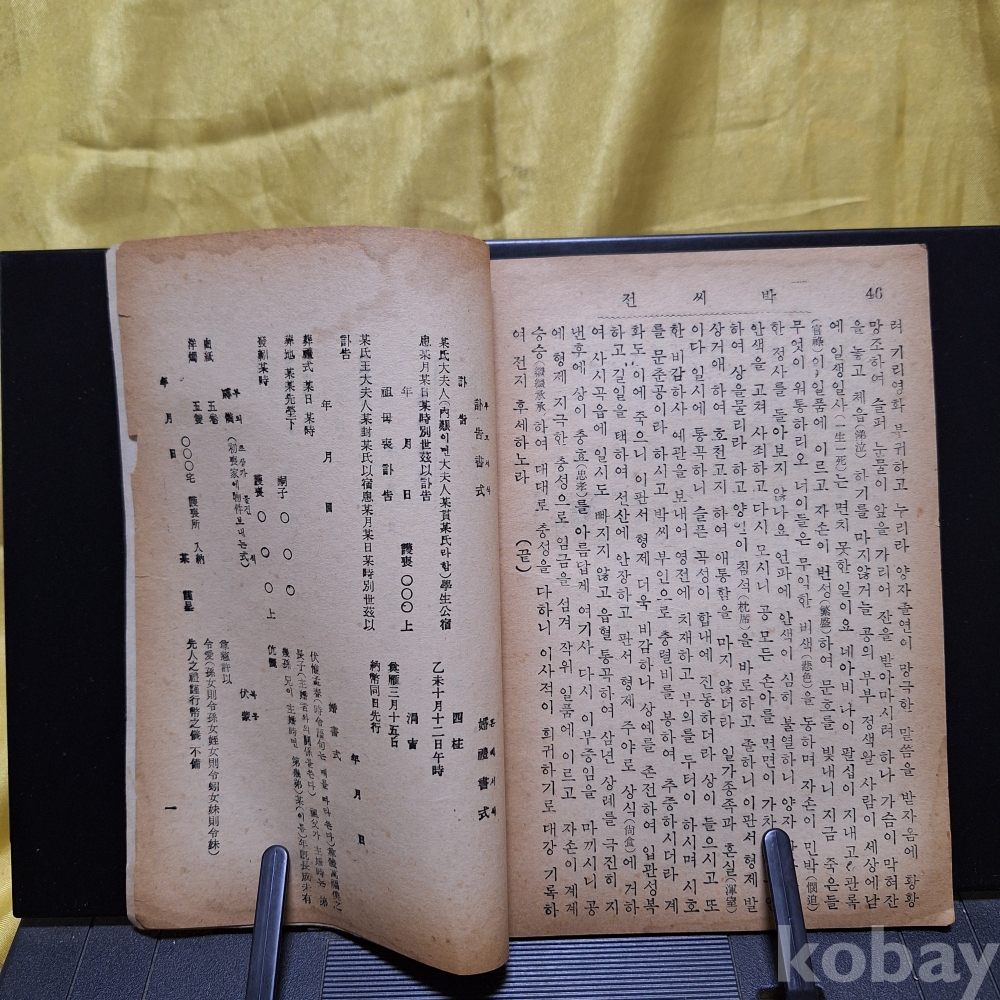 46
박 씨 전
려 기리영화 부귀하고 누리라 양자졸연이 망극한 말씀을 받자옴에 황황
망조하여 슬퍼 눈물이 앞을 가리어 잔을 받아마시려 하나 가슴이 막혀잔
을 놓고 체읍(涕泣)하기를 마지않거늘 공의 부부 정색왈 사람이 세상에남
에 일생일사(一生一死)는 면치 못한 일이요 네아비 나이 팔십이 지내고 관록
(官祿)이 일품에 이르고 자손이 번성(繁盛)하여 문호를 빛내니 지금 죽은들
무엇이 원통하리오 너이들은 무익한 비색(悲色)을 동하며 자손이 민박(憫迫)
한 정사를 돌아보지 않나요 언파에 안색이 심히 불열하니 양자
안색을 고쳐 사죄하고 다시 모시니 공 모든 손아를 면면이 가차
하여 상을물리라 하고 양인 침석(枕席)을 바로하고 졸하니 이판서 형제 발
상거애 하여 호천고지 하여 애통함을 마지 않더라 일가종족과 혼실(渾室)
이다 일시에 통곡하니 슬픈 곡성이 합내에 진동하더라 상이 들으시고 또
한 비감하사 예관을 보내어 영전에 치재하고 부의를 두터이 하시며 시호
를 문춘공이라 하시고 박씨 부인으로 충렬비를 봉하여 추증하시더라 계
화도 이에 죽으니 이판서 형제 더욱 비감하나 상에를 존전하여 입관성복
하고 길일을 택하여 선산에 안장하고 판서 형제 주야로 상식(尙食)에 거하
여 사시곡읍에 일시도 빠지지 않고 읍혈 통곡하여 삼년 상례를 극진히 지
낸후에 상이 충효(忠孝)를 아름답게 여기사 다시 이부중임을 마끼시니 공
에 형제 지극한 충성으로 임금을 섬겨 작위 일품에 이르고 자손이 계계
승승(繼繼承承)하여 대대로 충성을 다하니 이사적이 희귀하기로 대강 기록하
여 전지 후세하노라
(끝)
訃告書式
訃告
某氏大夫人(內艱이면大夫人某貫某氏라함)學生公宿
患某月某日某時別世玆以訃告
年 月 日
護喪 〇〇〇 上
祖母喪訃告
某氏王大夫人某封某氏以宿患某月某日某時別世玆以
訃告
年 月 日
葬禮式 某日 某時
葬地 某某先塋下
發靷某時
嗣子 〇 〇 〇
護喪 〇 〇 〇 上
賻儀 (初喪家에物件보내는式)
白紙 五卷
洋燭 五雙
〇〇〇宅 護喪所 入納
年 月 日
某 謹呈
婚禮書式
四柱
乙未十月十二日午時
涓吉
奠雁三月十五日
納幣同日先行
年 月 日
婚書式
伉儷
伏蒙
令愛(孫女則令孫女姪女則令姪女妹則令妹)
先人之禮謹行幣之儀 不備
一
kobay